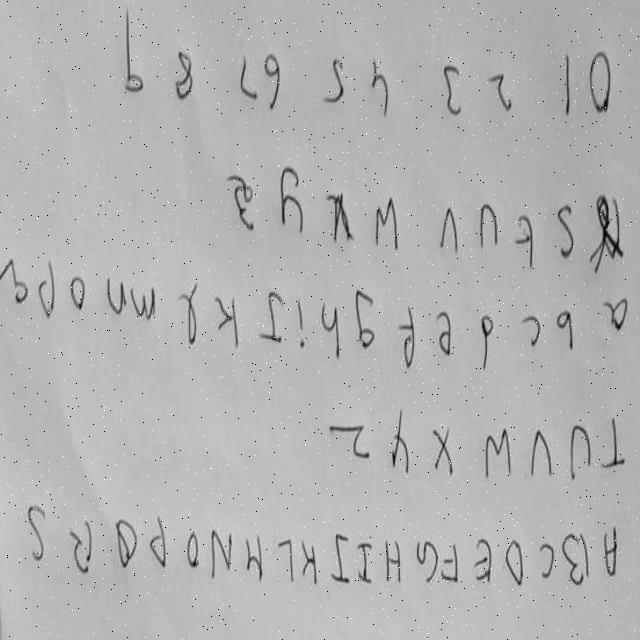 A B C D E F G H I J K L M N O P Q R S
T U V W X Y Z
a b c d e f g h i J k l m n o p q r
S t u v w x y z
0 1 2 3 4 5 6 7 8 9